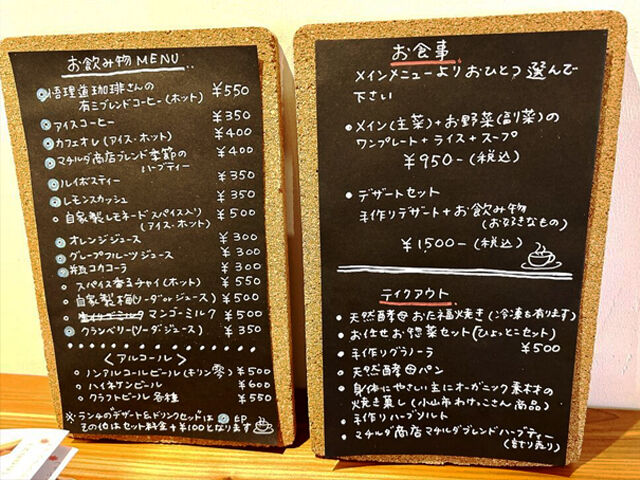 お飲み物 MENU
悟理道珈琲さんの ¥550
布ミブレンドコーヒー(ホット)
アイスコーヒー ¥350
カフェオレ(アイス・ホット) ¥400
マチルダ商店ブレンド季節の ¥400
ハーブティー
ルイボスティー ¥350
レモンスカッシュ ¥350
自家製レモネードスパイス入り ¥500
(アイス・ホット)
オレンジジュース ¥300
グレープフルーツジュース ¥300
瓶コカコーラ ¥300
スパイス香るチャイ(ホット) ¥550
自家製梅(ソーダorジュース) ¥500
マンゴーミルク ¥500
クランベリー(ソーダ・ジュース) ¥350
<アルコール>
ノンアルコールビール(キリン零) ¥500
ハイネケンビール ¥600
クラフトビール 各種 ¥550
※ランチのデザート&ドリンクセットは 印
その他はセット料金+¥100となります
お食事
メインメニューよりおひとつ選んで
下さい
メイン(主菜)+お野菜(副菜)の
ワンプレート+ライス+スープ
¥950-(税込)
デザートセット
手作りデザート+お飲み物
(お好きなもの)
¥1,500-(税込)
テイクアウト
天然酵母おた福焼き(冷凍も有ります)
お任せお惣菜セット(ひょっとこセット)
¥500
手作りグラノーラ
天然酵母パン
身体にやさしい主にオーガニック素材の
焼き菓し(小山市わけっこさん商品)
手作りハーブソルト
マチルダ商店マチルダブレンドハーブティー
(計り売り)